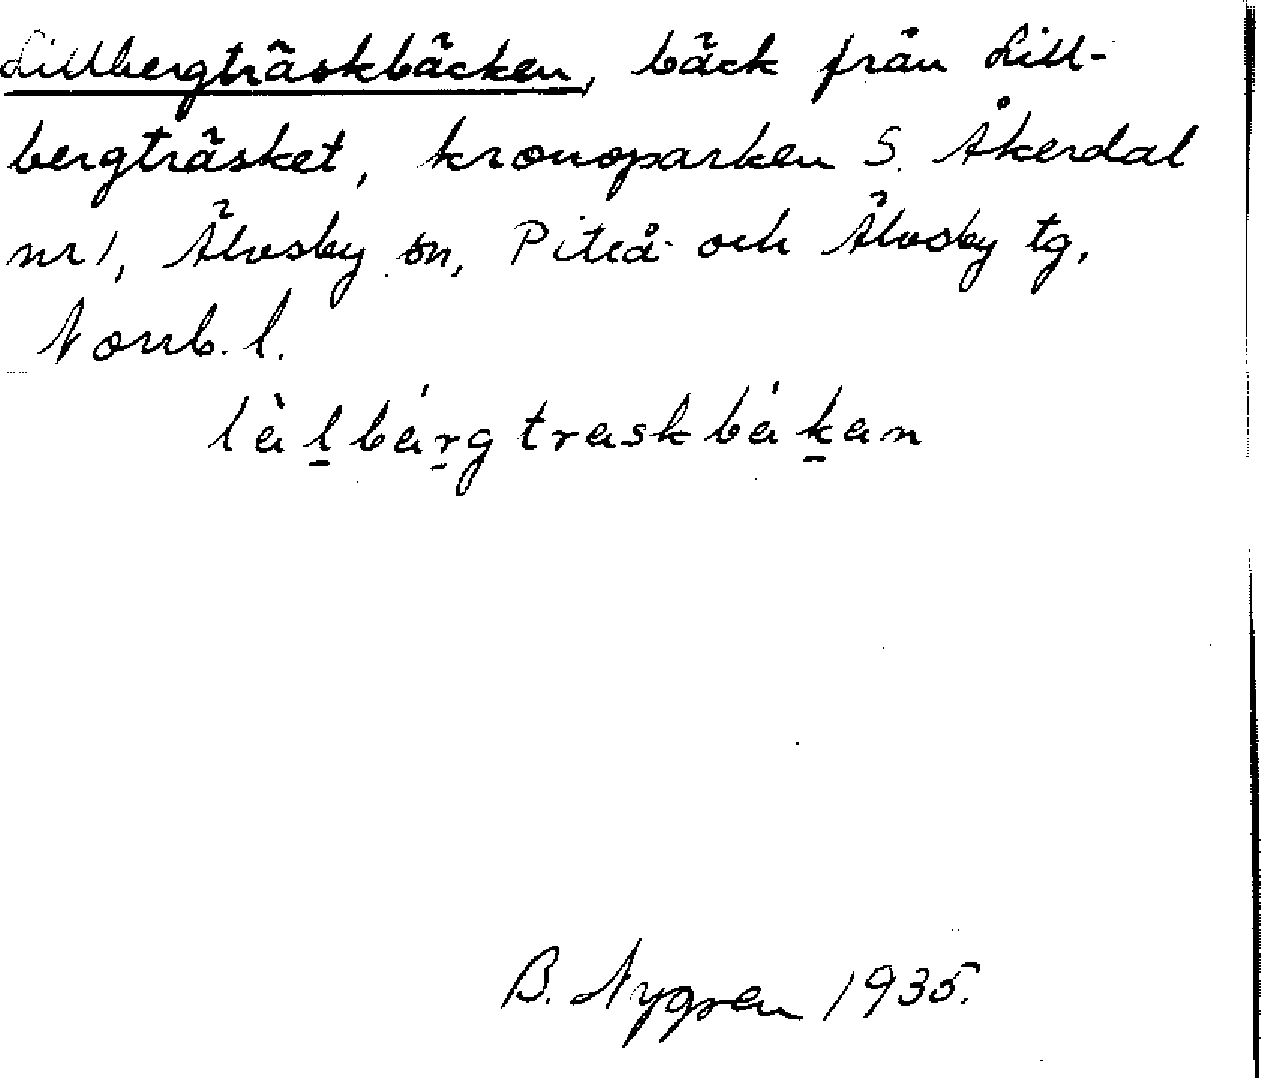 Lillbergträskbäcken, bäck från Lill-
bergträsket, kronoparken S. Åkerdal
nr 1, Älvsby sn, Piteå och Älvsby tg,
Norrb. l.
làl̠bár̠gtraskbák̠an
B. Nygren 1935.